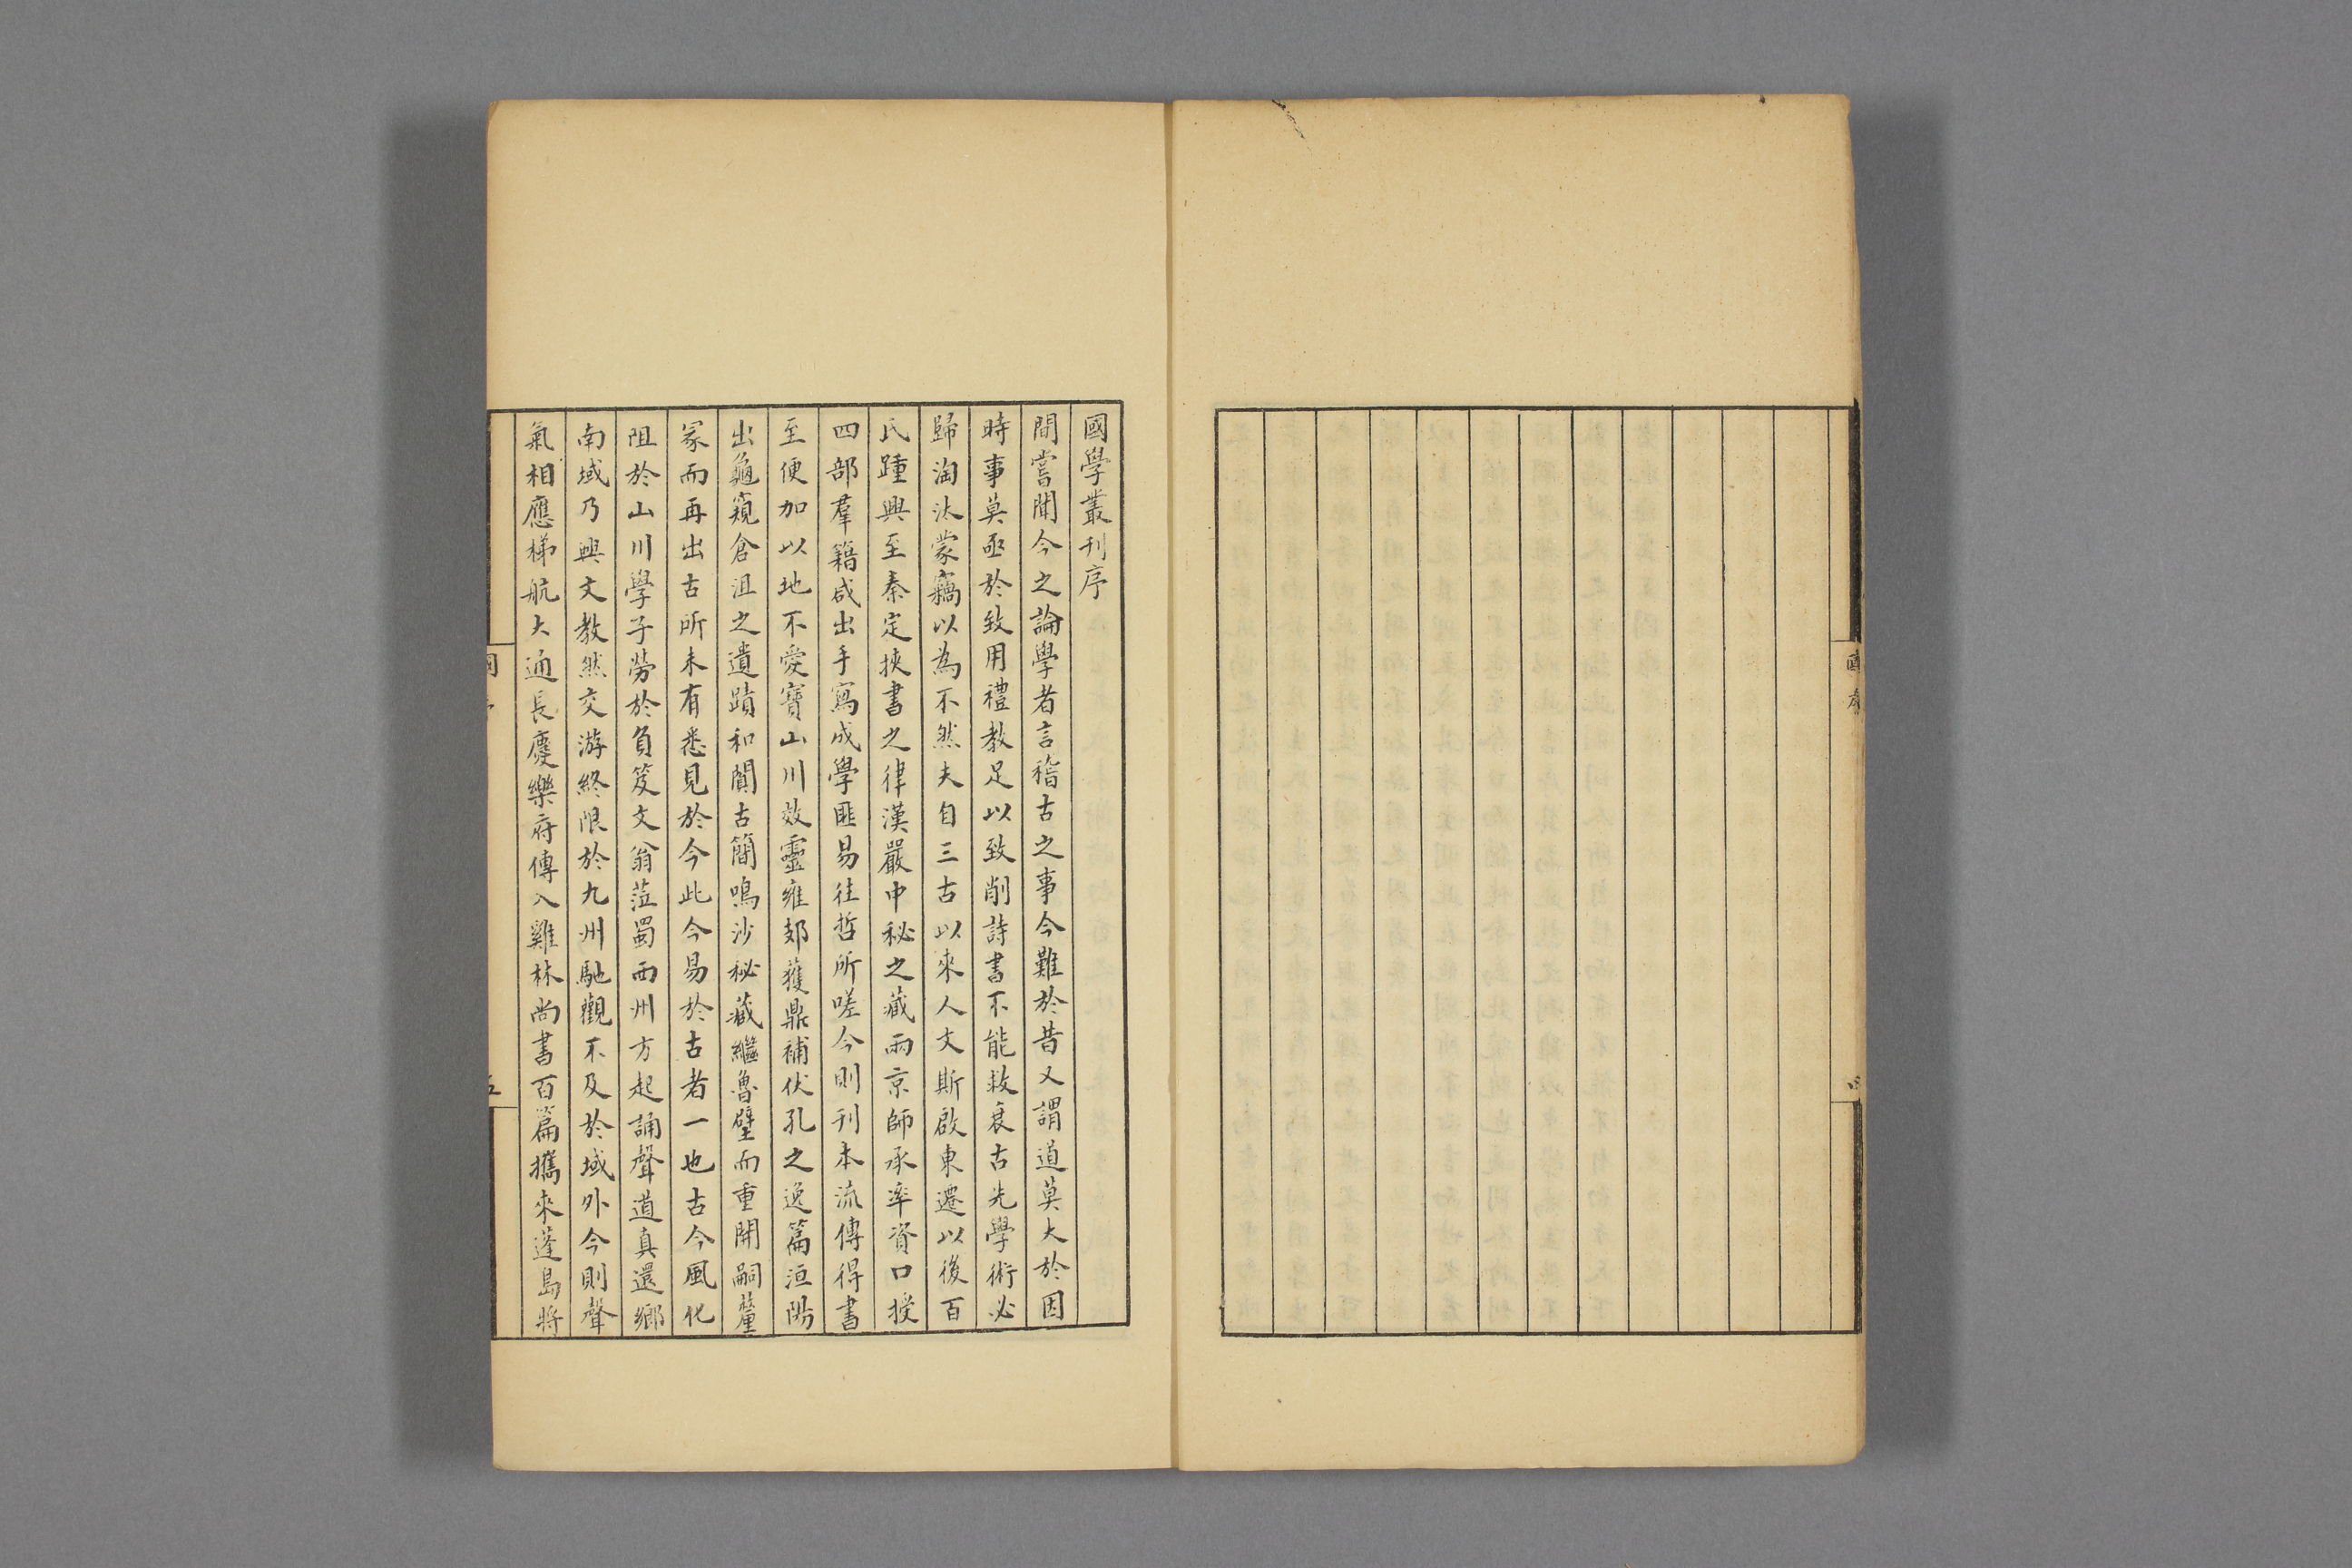 國學叢刊序
間嘗聞今之論學者言稽古之事今難於昔又謂道莫大於因
時事莫亟於致用禮教足以致削詩書不能救衰古先學術必
歸淘汰蒙竊以為不然夫自三古以來人文斯啟東遷以後百
氏踵興至秦定挾書之律漢嚴中秘之藏兩京師承率資口授
四部羣籍咸出手寫成學匪易往哲所嗟今則刊本流傳得書
至便加以地不愛寶山川效靈雍郊獲鼎補伏孔之逸篇洹陽
出龜窺倉沮之遺蹟和闐古簡鳴沙秘藏繼魯壁而重開嗣釐
冢而再出古所未有悉見於今此今易於古者一也古今風化
阻於山川學子勞於負笈文翁蒞蜀西州方起誦聲道真還鄉
南域乃興文教然交游終限於九州馳觀不及於域外今則聲
氣相應梯航大通長慶樂府傳入雞林尚書百篇攜來蓬島將
五